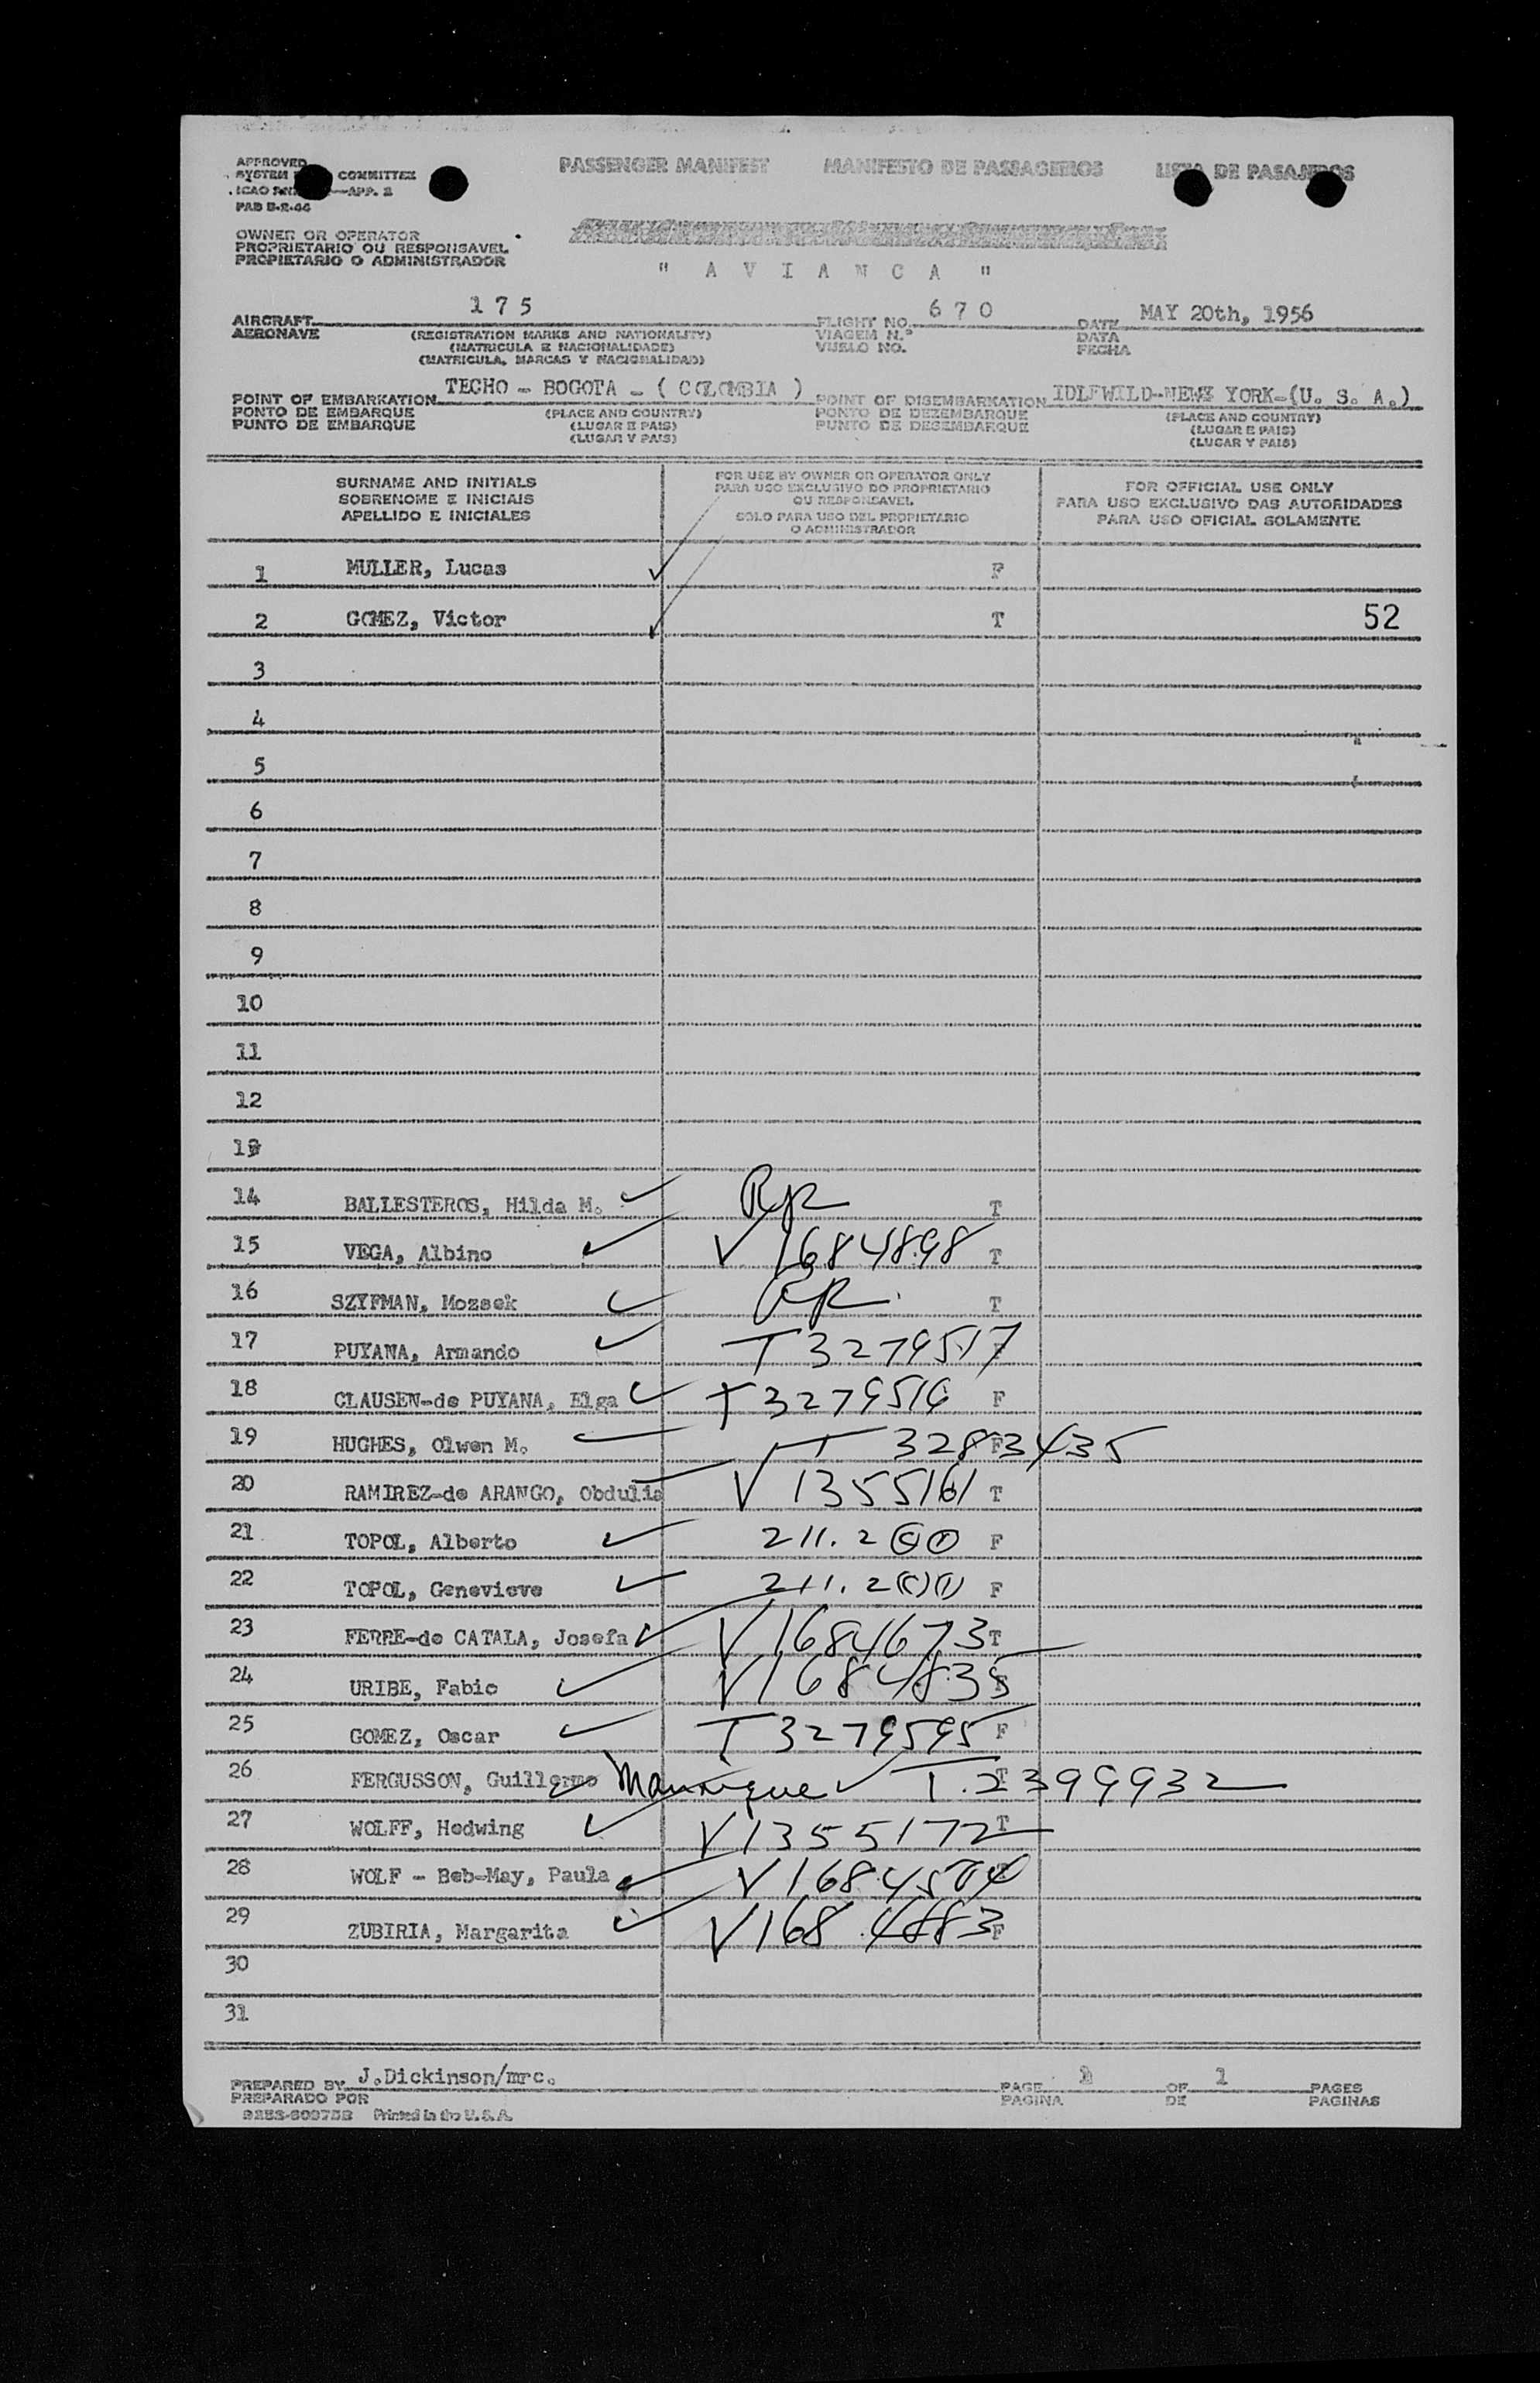 APPROVED
SYSTEM COMMITTEE
ICAO —APP. 2
PAB B-2-44
PASSENGER MANIFEST MANIFESTO DE PASSAGEIROS LISTA DE PASAJEROS
OWNER OR OPERATOR
PROPRIETARIO OU RESPONSAVEL
PROPIETARIO O ADMINISTRADOR
" A V I A N C A "
AIRCRAFT 175 FLIGHT NO. 670 DATE MAY 20th, 1956
AERONAVE (REGISTRATION MARKS AND NATIONALITY) VIAGEM N.º DATA
(MATRICULA E NACIONALIDADE) VUELO NO. FECHA
(MATRICULA, MARCAS Y NACIONALIDAD)
POINT OF EMBARKATION TECHO - BOGOTA - ( COLOMBIA ) POINT OF DISEMBARKATION IDLEWILD-NEW YORK-(U. S. A.)
PONTO DE EMBARQUE (PLACE AND COUNTRY) PONTO DE DEZEMBARQUE (PLACE AND COUNTRY)
PUNTO DE EMBARQUE (LUGAR E PAIS) PUNTO DE DESEMBARQUE (LUGAR E PAIS)
(LUGAR Y PAIS) (LUGAR Y PAIS)
SURNAME AND INITIALS
SOBRENOME E INICIAIS
APELLIDO E INICIALES
FOR USE BY OWNER OR OPERATOR ONLY
PARA USO EXCLUSIVO DO PROPRIETARIO
OU RESPONSAVEL
SOLO PARA USO DEL PROPIETARIO
O ADMINISTRADOR
FOR OFFICIAL USE ONLY
PARA USO EXCLUSIVO DAS AUTORIDADES
PARA USO OFICIAL SOLAMENTE
1 MULLER, Lucas F
2 GOMEZ, Victor T 52
3
4
5
6
7
8
9
10
11
12
13
14 BALLESTEROS, Hilda M. RR T
15 VEGA, Albino V 1684898 T
16 SZYFMAN, Mozsek RR. T
17 PUYANA, Armando T 3279517 F
18 CLAUSEN-de PUYANA, Elga T 3279516 F
19 HUGHES, Olwen M. T 3283435 F
20 RAMIREZ-de ARANGO, Obdulia V 1355161 T
21 TOPOL, Alberto 211.2 (c)(1) F
22 TOPOL, Genevieve 211.2(c)(1) F
23 FERRE-de CATALA, Josefa V 1684673 T
24 URIBE, Fabio V 1684835
25 GOMEZ, Oscar T 3279595 F
26 FERGUSSON, Guillermo Manrique T.2399932 T
27 WOLFF, Hedwing V 1355172 T
28 WOLF - Beb-May, Paula V 1684504
29 ZUBIRIA, Margarita V 168 4883 F
30
31
PREPARED BY J.Dickinson/mrc. PAGE 1 OF 1 PAGES
PREPARADO POR PAGINA DE PAGINAS
Printed in the U.S.A.